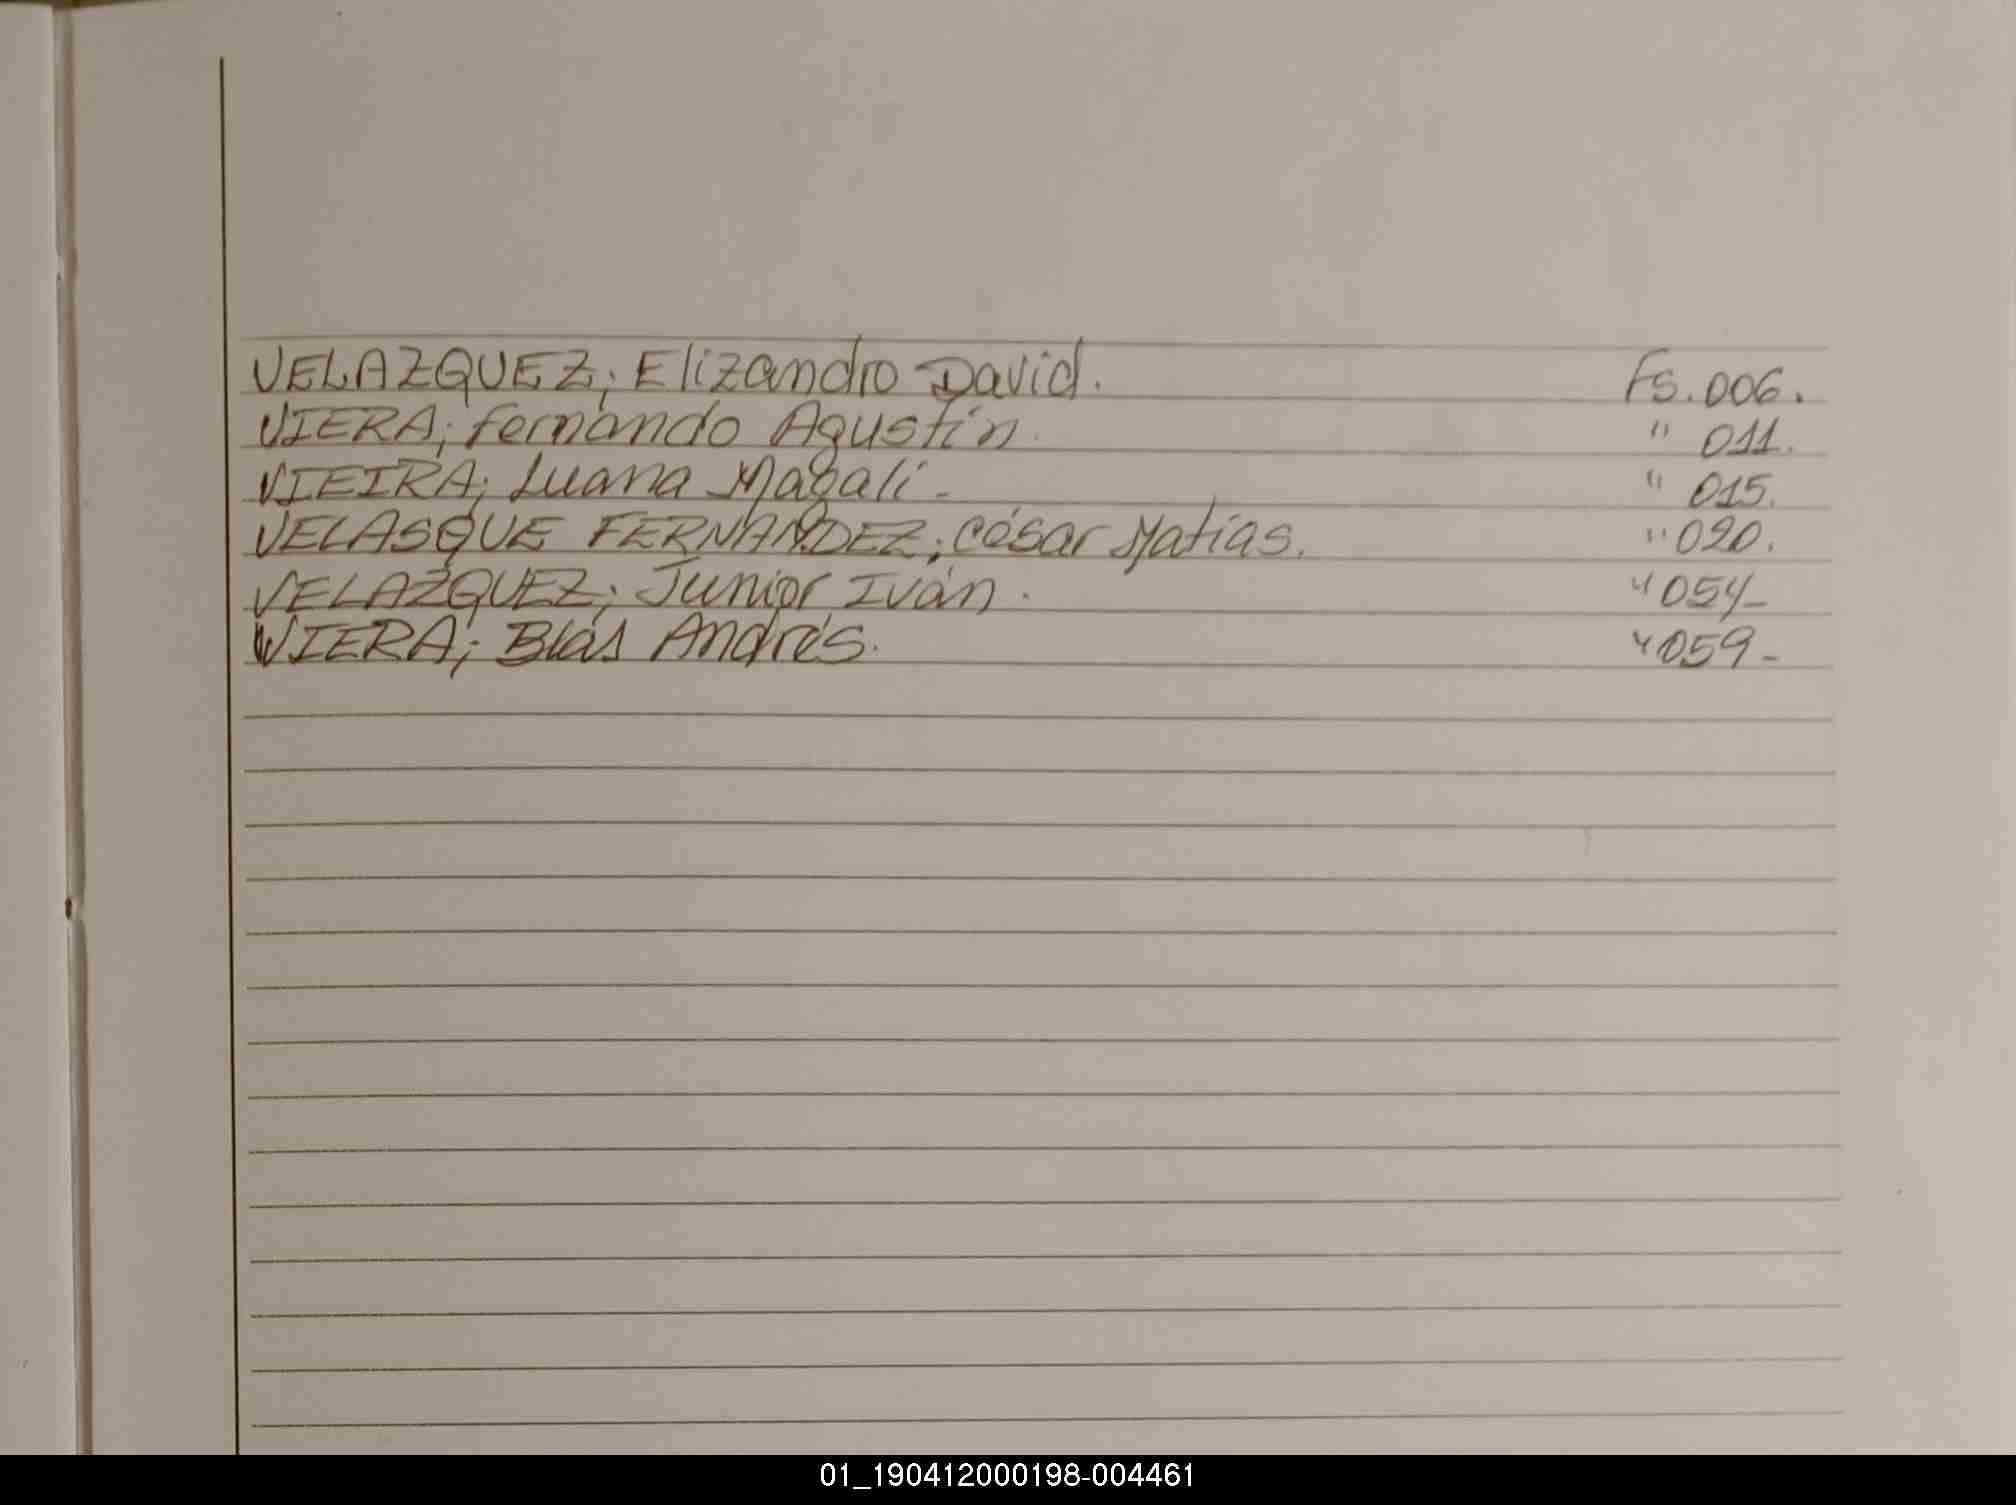 VELAZQUEZ; Elizandro David. Fs. 006.
VIERA; Fernando Agustín. " 011.
VIEIRA; Luana Magalí - " 015.
VELASQUE FERNANDEZ; César Matías. " 020.
VELAZQUEZ; Junior Iván. " 054-
VIERA; Blás Andrés. " 059-
01_190412000198-004461